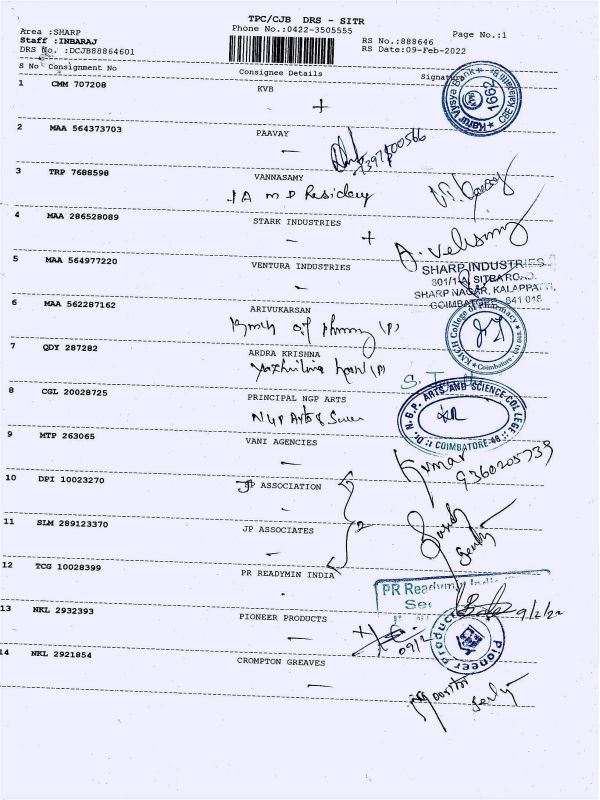 TPC/CJB DRS - SITR
Area :SHARP
Phone No.:0422-3505555
Page No.:1
Staff :INBARAJ
RS No.:888646
DRS No. :DCJB88864601
RS Date:09-Feb-2022
S No Consignment No Consignee Details Signature
1 CMM 707208 KVB
Karur Vysya Bank
1662
2 MAA 564373703 PAAVAY
3 TRP 7688598 VANNASAMY
4 MAA 286528089 STARK INDUSTRIES
A. Velusamy
5 MAA 564977220 VENTURA INDUSTRIES
SHARP INDUSTRIES
801/1-A, SITRA ROAD,
SHARP NAGAR, KALAPPATTI,
COIMBATORE - 641 048
6 MAA 562287162 ARIVUKARSAN
KMCH College of Pharmacy
7 QDY 287282 ARDRA KRISHNA
8 CGL 20028725 PRINCIPAL NGP ARTS
NGP Arts &
Dr. N.G.P. ARTS AND SCIENCE COLLEGE
COIMBATORE-48
9 MTP 263065 VANI AGENCIES
Kumar
9360205739
10 DPI 10023270 JP ASSOCIATION
11 SLM 289123370 JP ASSOCIATES
12 TCG 10028399 PR READYMIN INDIA
PR Readymi India
9/2/22
13 NKL 2932393 PIONEER PRODUCTS
09/2
Pioneer Products
14 NKL 2921854 CROMPTON GREAVES